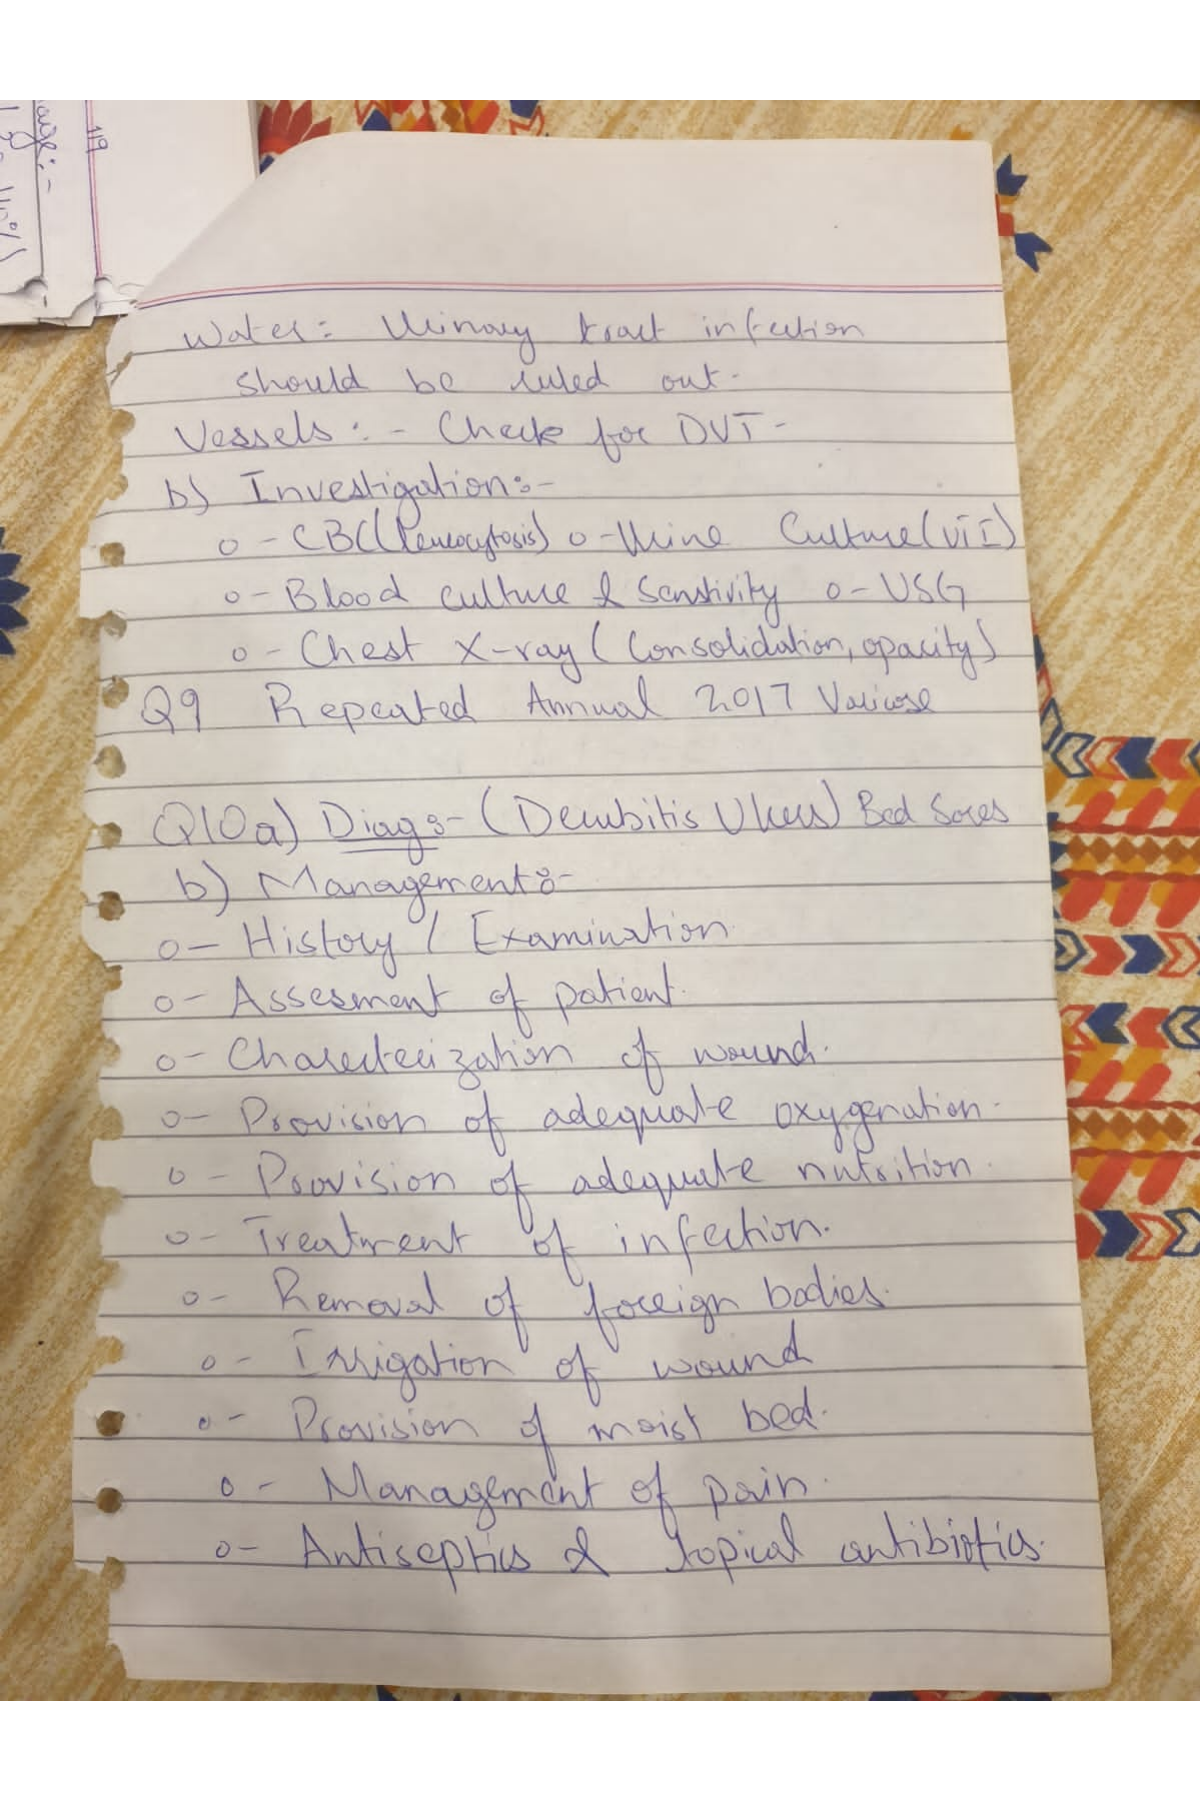 119
Water: Urinary tract infection
should be ruled out.
Vessels: - Check for DVT -
b) Investigation:-
o - CBC (Leucocytosis) o - Urine Culture (UTI)
o - Blood culture & Senstivity o - USG
o - Chest X-ray (Consolidation, opacity)
Q9 Repeated Annual 2017 Varicose
Q10 a) Diag:- (Decubitis Ulcers) Bed Sores
b) Management:-
o - History / Examination
o - Assesment of patient.
o - Charecterization of wound.
o - Provision of adequate oxygenation.
o - Provision of adequate nutrition.
o - Treatment of infection.
o - Removal of foreign bodies.
o - Irrigation of wound
o - Provision of moist bed.
o - Management of pain.
o - Antiseptics & topical antibiotics.